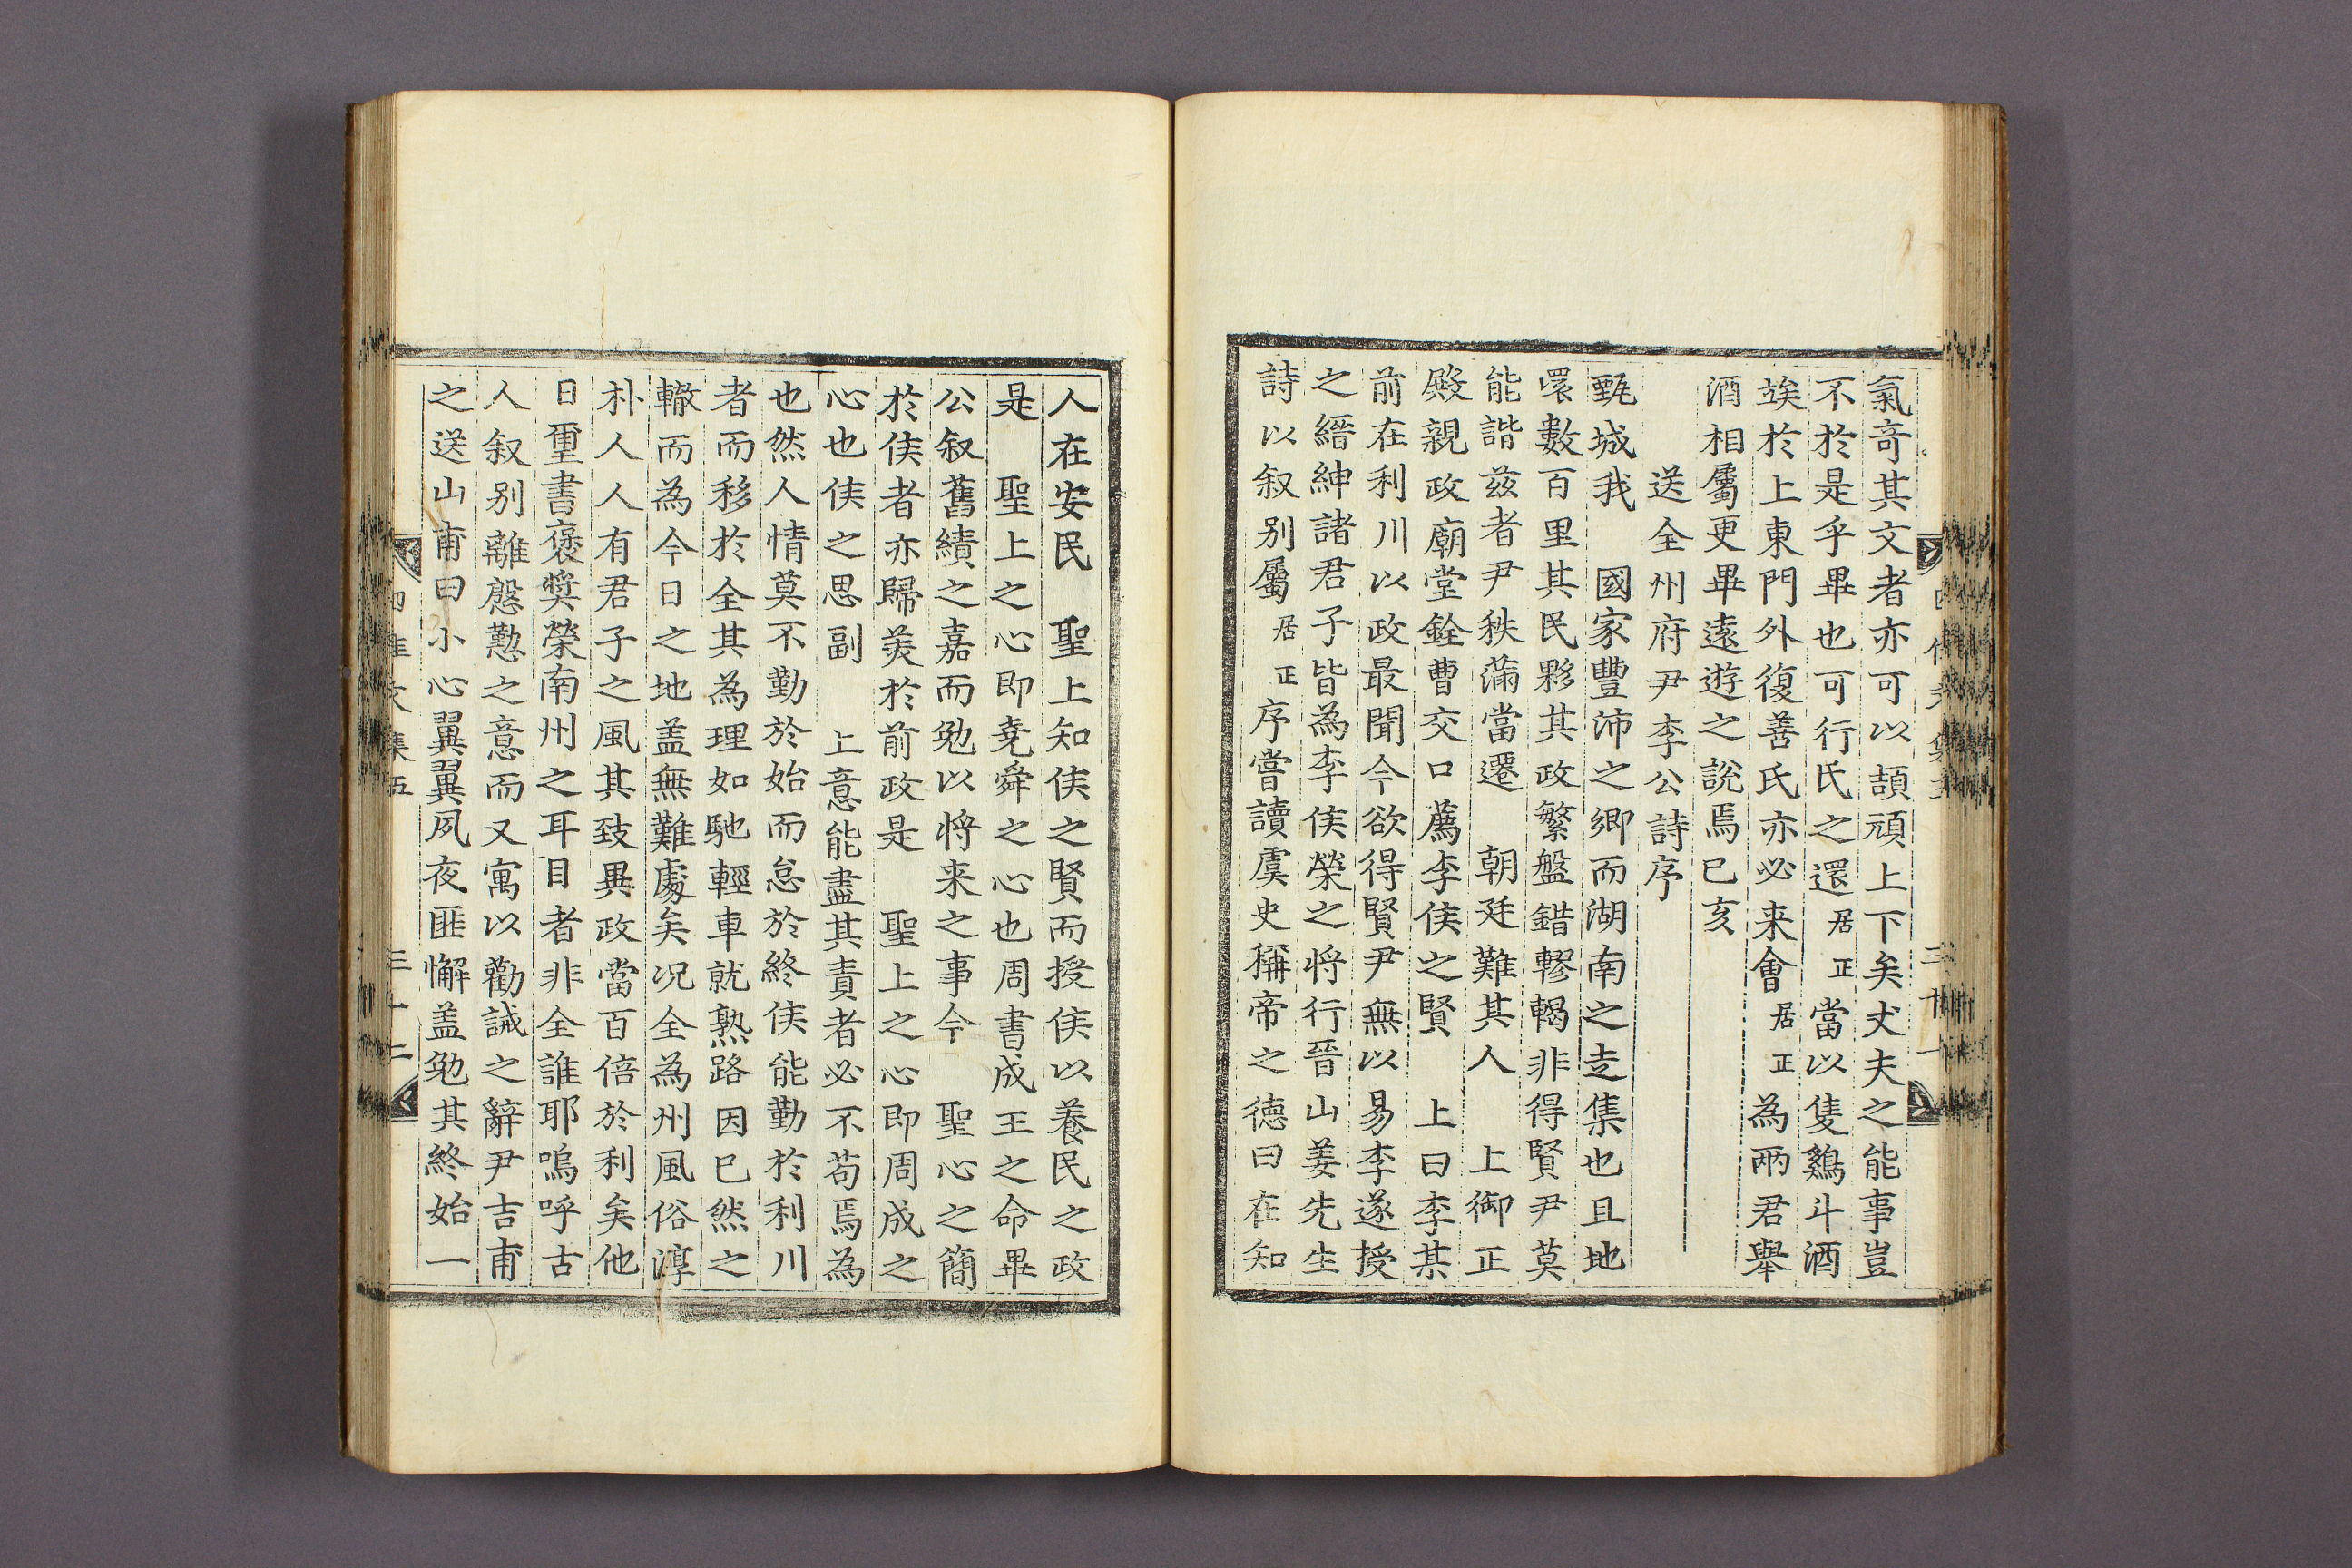 氣奇其文者亦可以頡頏上下矣丈夫之能事豈
不於是乎畢也可行氏之還居正當以隻鷄斗酒
竢於上東門外復善氏亦必来會居正為兩君舉
酒相屬更畢遠遊之說焉已亥
送全州府尹李公詩序
甄城我 國家豐沛之鄕而湖南之走集也且地
環數百里其民夥其政繁盤錯轇轕非得賢尹莫
能諧玆者尹秩滿當遷 朝廷難其人 上御正
殿親政廟堂銓曹交口薦李侯之賢 上曰李某
前在利川以政最聞今欲得賢尹無以易李遂授
之縉紳諸君子皆為李侯榮之將行晉山姜先生
詩以叙別屬居正序嘗讀虞史稱帝之德曰在知
人在安民 聖上知侯之賢而授侯以養民之政
是 聖上之心即堯舜之心也周書成王之命畢
公叙舊績之嘉而勉以將来之事今 聖心之簡
於侯者亦歸羙於前政是 聖上之心即周成之
心也侯之思副 上意能盡其責者必不苟焉為
也然人情莫不勤於始而怠於終侯能勤於利川
者而移於全其為理如馳輕車就熟路因已然之
轍而為今日之地盖無難處矣况全為州風俗淳
朴人人有君子之風其致異政當百倍於利矣他
日璽書褒奬榮南州之耳目者非全誰耶嗚呼古
人叙别離慇懃之意而又寓以勸誡之辭尹吉甫
之送山甫曰小心翼翼夙夜匪懈盖勉其終始一